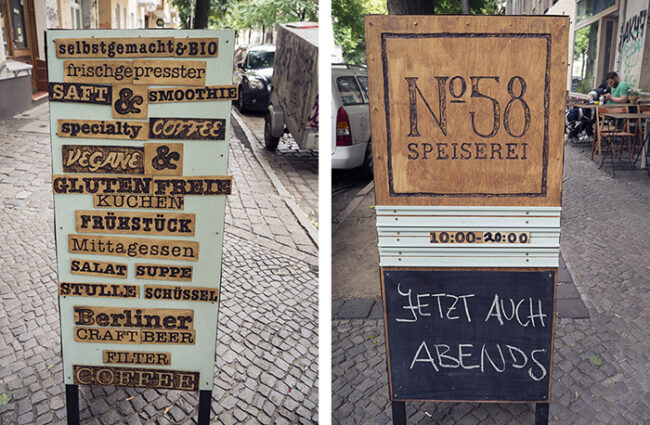 selbstgemacht & BIO
frischgepresster
SAFT & SMOOTHIE
specialty COFFEE
VEGANE &
GLUTENFREIE
KUCHEN
FRÜHSTÜCK
Mittagessen
SALAT SUPPE
STULLE SCHÜSSEL
Berliner
CRAFT BEER
FILTER
COFFEE
No58
SPEISEREI
10:00-20:00
JETZT AUCH
ABENDS